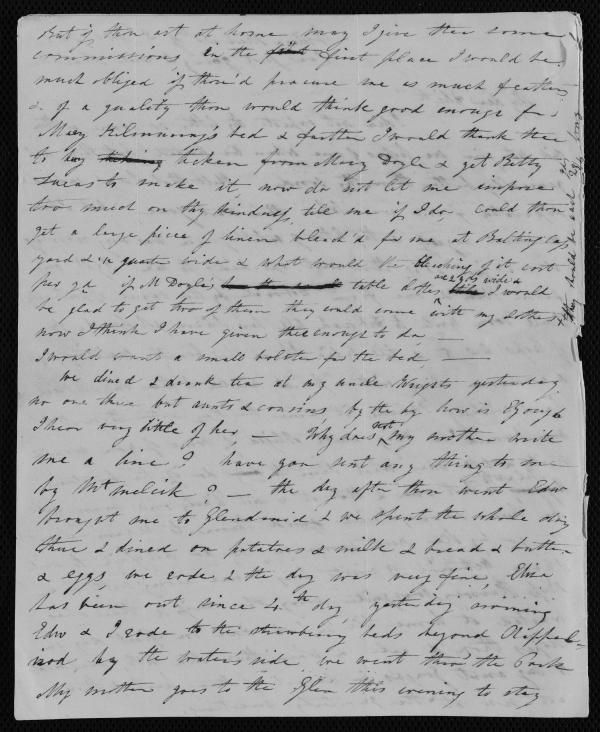 But if thou art at home may I give thee some
commissions in the first first place I would be
much obliged if thou'd procure me as much feathers
& of a quality thou would think good enough for
Mary bed & further I would thank thee
to buy ticking ticken from Mary Doyle & get Betty
Lucas to make it now do not let me impose
too much on thy kindness, tell me if I do could thou
get a large piece of linen bleach'd for me at Balting
yard & a quarter wide & what would the bleaching of it cost
per yd if M Doyle's table cloths are 2 yds wide & I would
be glad to get two of them they could come with my clothes
now I think I have given thee enough to do —
I would want a small bolster for the bed, —
We dined & drank tea at my uncle Wrights yesterday
no one there but aunts & cousins by the by how is E Gough
I hear very little of her, — Why does not my mother write
me a line? have you not any thing to me
by Mt ? — the day after thou went Edw
brought me to Glendruid & we spent the whole day
there & dined on potatoes & milk & bread & butter
& eggs, we rode & the day was very fine, Eliza
has been out since 4th day, yesterday morning
Edw & I rode to the strawberry beds beyond
by the water's side, we went thro' the Park
My mother goes to the Glen this evening to stay
they should be each yds long